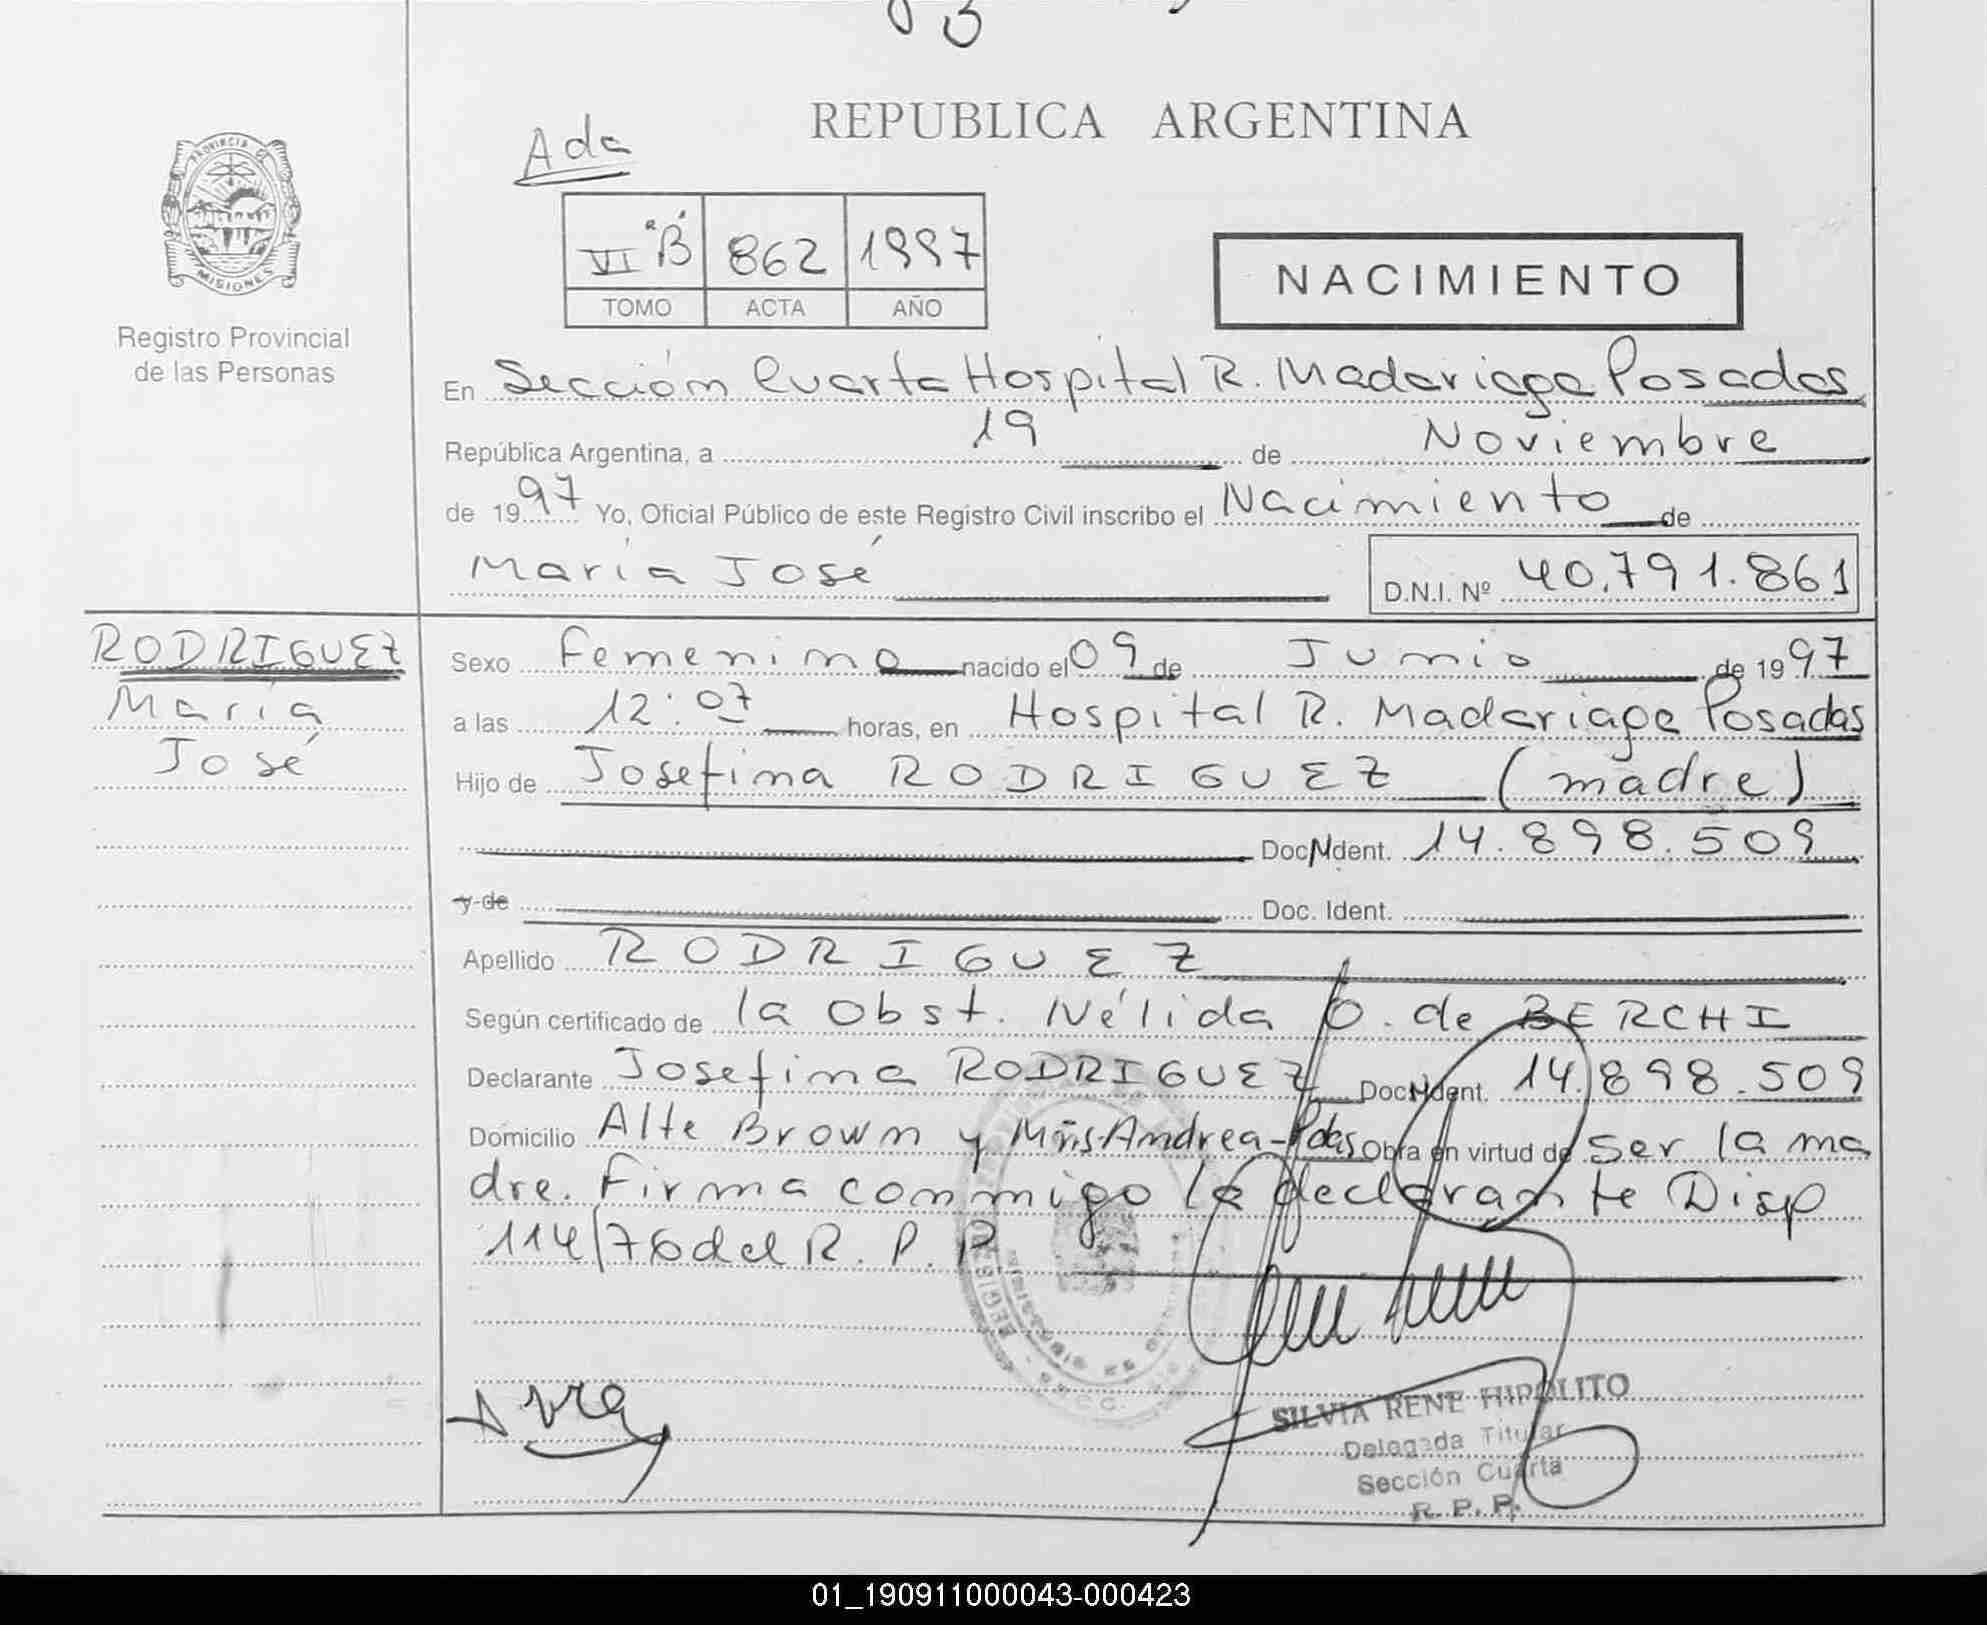 REPUBLICA ARGENTINA
Ada
PROVINCIA DE
MISIONES
VI "B" 862 1997
TOMO ACTA AÑO
NACIMIENTO
Registro Provincial
de las Personas
En Sección Cuarta Hospital R. Madariaga Posadas
República Argentina, a 19 de Noviembre
de 1997 Yo, Oficial Público de este Registro Civil inscribo el Nacimiento de
María José D.N.I. Nº 40.791.861
RODRIGUEZ
María
José
Sexo femenino nacido el 09 de Junio de 1997
a las 12:07 horas, en Hospital R. Madariaga Posadas
Hijo de Josefina RODRIGUEZ (madre)
Doc. Ident. 14.898.509
y de Doc. Ident.
Apellido RODRIGUEZ
Según certificado de la Obst. Nélida O. de BERCHI
Declarante Josefina RODRIGUEZ Doc. Ident. 14.898.509
Domicilio Alte Brown y Mñs-Andrea-Pdas Obra en virtud de ser la ma
dre. Firma conmigo la declarante Disp
114/76 del R. P. P
SILVIA RENE HIPOLITO
Delegada Titular
Sección Cuarta
R. P. P.
01_190911000043-000423